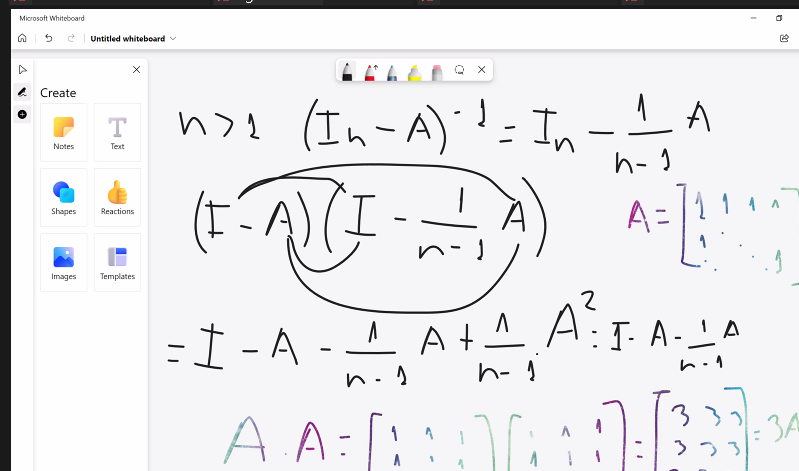 Microsoft Whiteboard
Untitled whiteboard
Create
Notes
Text
Shapes
Reactions
Images
Templates
n > 1 (I_n - A)^-1 = I_n - 1/(n-1) A
(I - A)(I - 1/(n-1) A)
A = [1 1 1 1
1 . .
. . 1
= I - A - 1/(n-1) A + 1/(n-1) . A^2 = I - A - 1/(n-1) A
A . A = [1 1 1] [1 1 1] = [3 3 3] = 3A
1 1 1 1 1 1 3 3 3